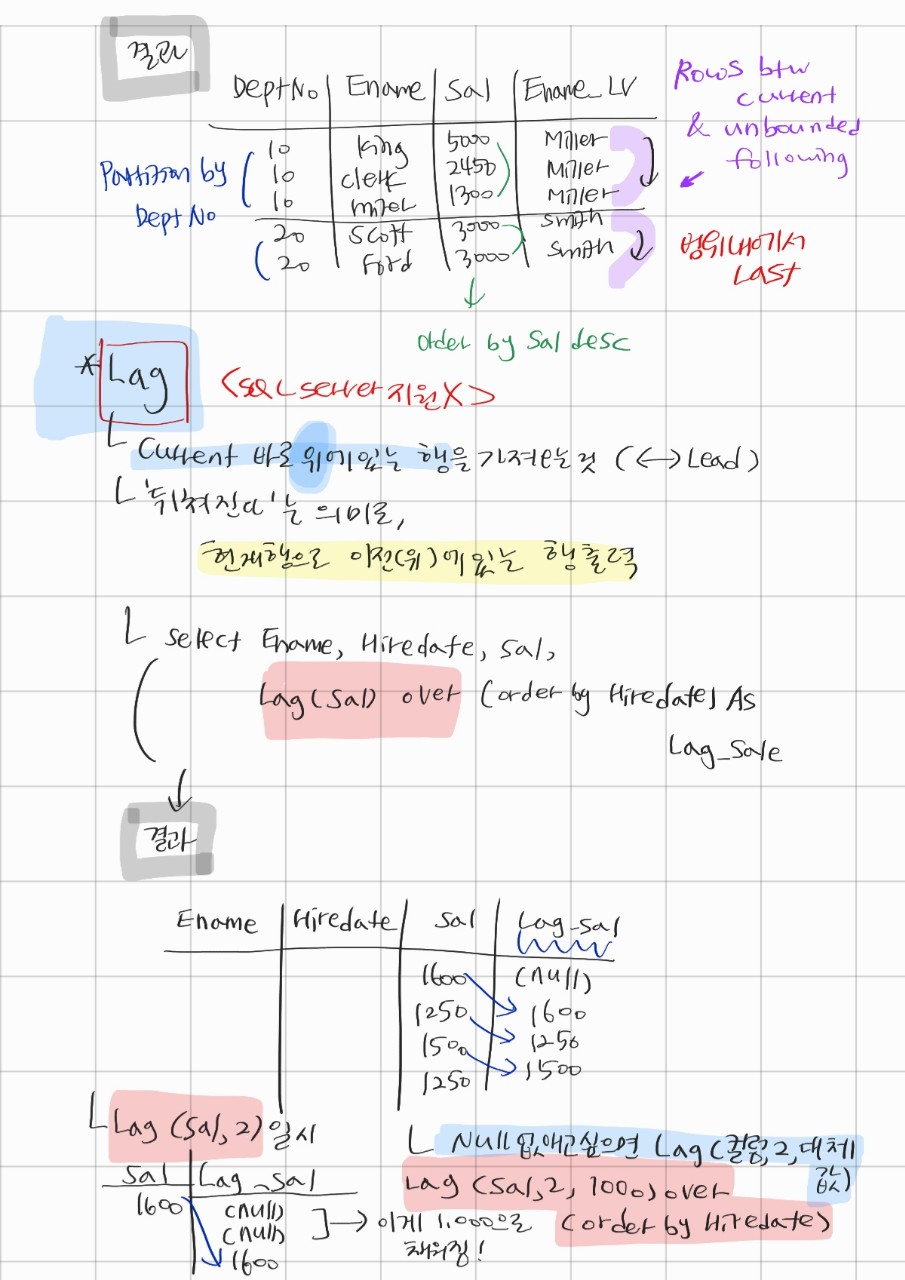 결과
DeptNo Ename Sal Ename_LV
10 King 5000 Miller
10 clerk 2450 Miller
10 miler 1300 Miller
20 Scott 3000 Smith
20 Ford 3000 Smith
Partition by
Dept No
Rows btw
current
& unbounded
following
범위내에서
Last
order by Sal desc
*Lag
<SQL server 지원X>
Current 바로 위에있는 행을 가져오는것 (↔Lead)
'뒤쳐진다'는 의미로,
현재행으로 이전(위)에있는 행출력
select Ename, Hiredate, Sal,
Lag(Sal) over (order by Hiredate) As
Lag_Sale
결과
Ename Hiredate Sal Lag_sal
1600 (null)
1250 1600
1500 1250
1250 1500
Lag (Sal, 2) 일시
Sal Lag_sal
1600 (null)
(null)
1600
→ 이게 1.000으로
채워짐!
Null 없애고싶으면 Lag(컬럼, 2, 대체
값)
Lag (Sal, 2, 1000) over
(order by Hiredate)